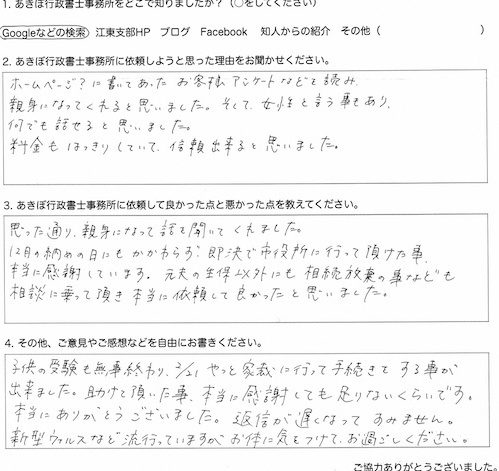 1. あきぼ行政書士事務所をどこで知りましたか？（○をしてください）
Googleなどの検索　江東支部HP　ブログ　Facebook　知人からの紹介　その他（　　　　　　　）
2. あきぼ行政書士事務所に依頼しようと思った理由をお聞かせください。
ホームページ？に書いてあった お客様アンケートなどを読み、
親身になってくれると思いました。そして、女性と言う事もあり、
何でも話せると思いました。
料金もはっきりしていて、信頼出来ると思いました。
3. あきぼ行政書士事務所に依頼して良かった点と悪かった点を教えてください。
思った通り、親身になって話を聞いてくれました。
12月の納めの日にもかかわらず、即決で市役所に行って頂けた事、
本当に感謝しています。元夫の生保以外にも 相続放棄の事なども
相談に乗って頂き 本当に依頼して良かったと思いました。
4. その他、ご意見やご感想などを自由にお書きください。
子供の受験も無事終わり、2/21 やっと家裁に行って手続きをする事が
出来ました。助けて頂いた事、本当に感謝しても足りないくらいです。
本当にありがとうございました。返信が遅くなってすみません。
新型ウィルスなど流行っていますがお体に気をつけて、お過ごしください。
ご協力ありがとうございました。